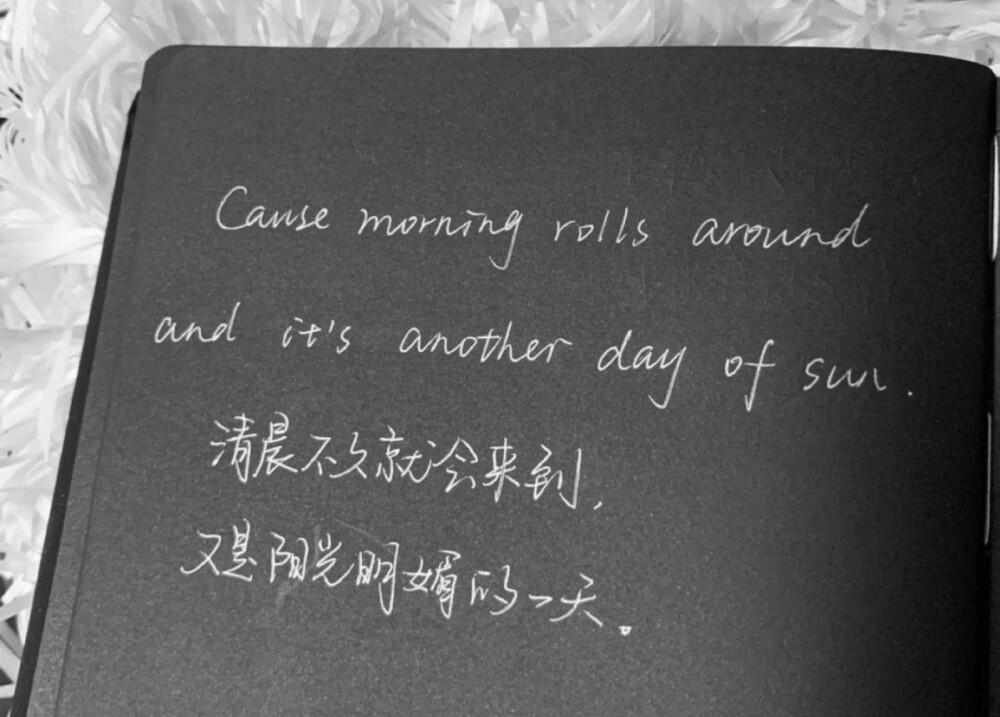 Cause morning rolls around
and it's another day of sun.
清晨不久就会来到,
又是阳光明媚的一天。